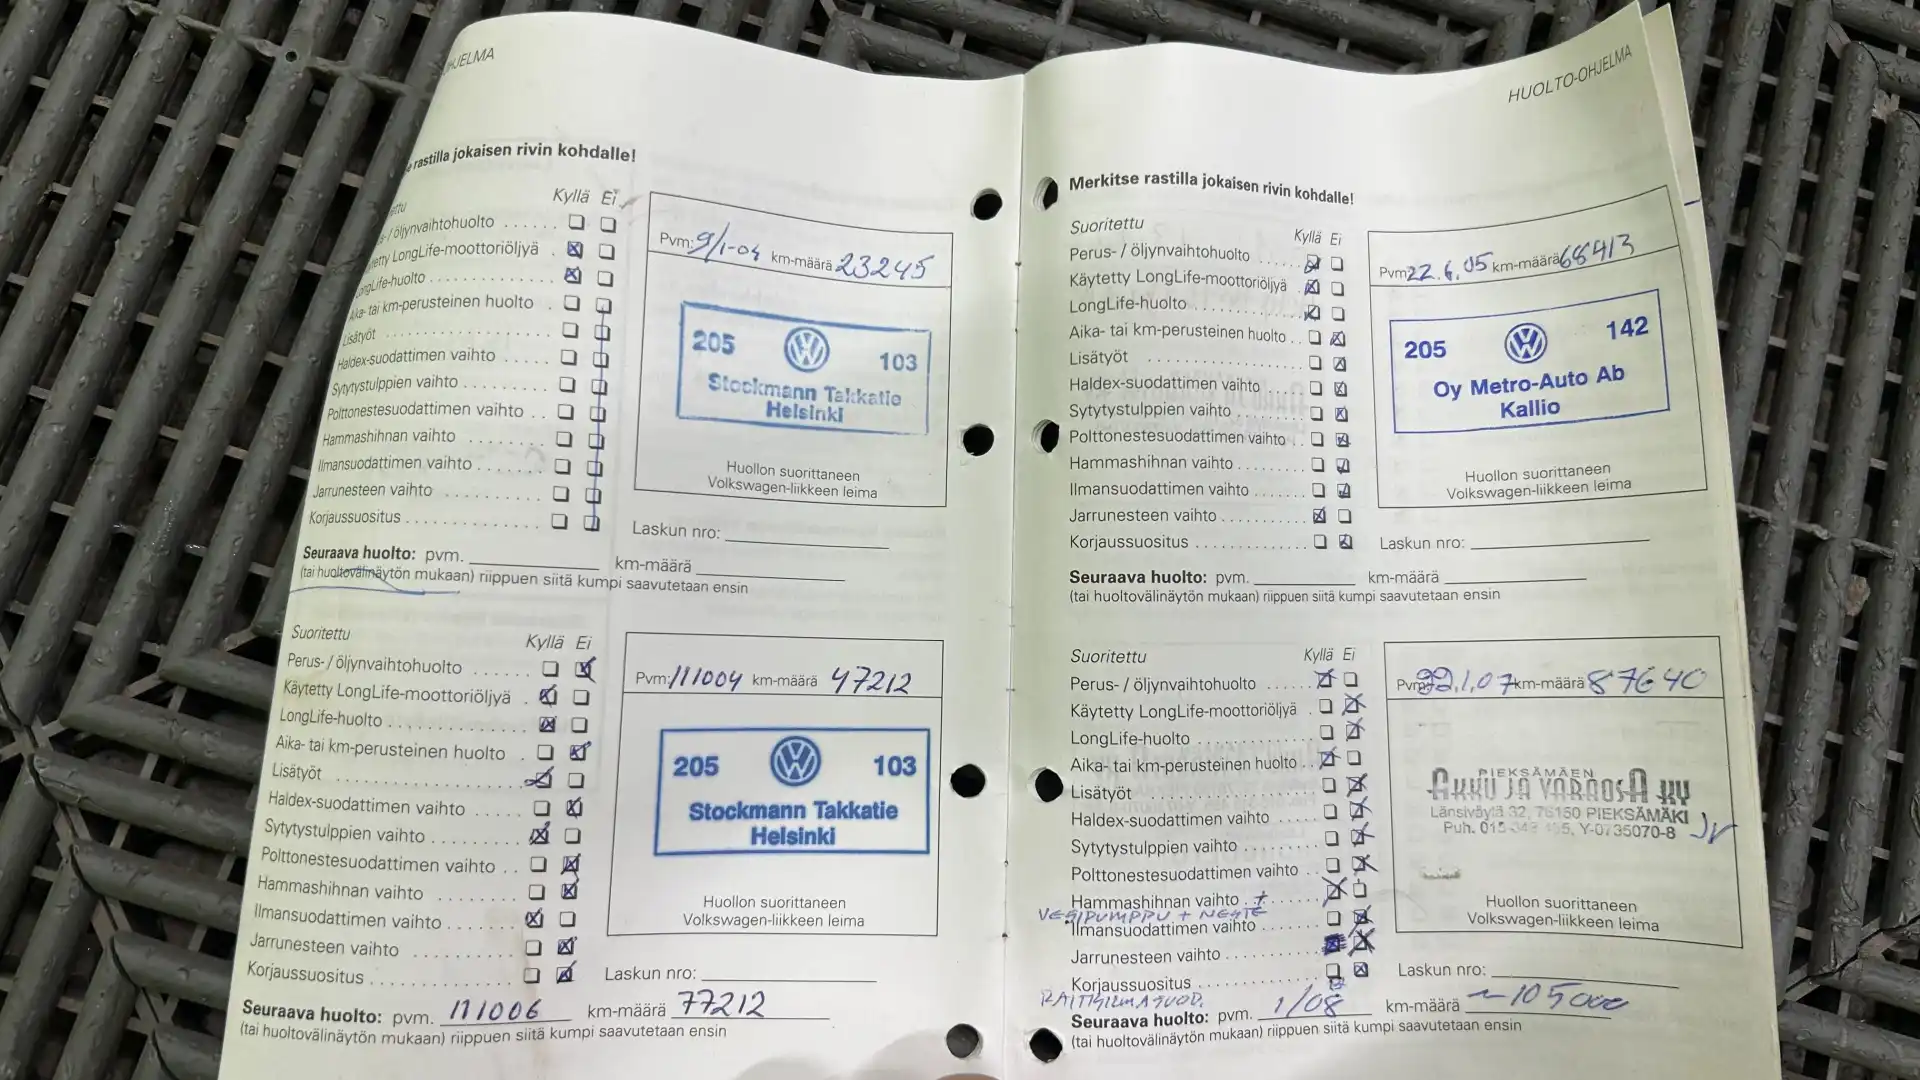 HUOLTO-OHJELMA
rastilla jokaisen rivin kohdalle!
Kyllä Ei
öljynvaihtohuolto
LongLife-moottoriöljyä
LongLife-huolto
Aika- tai km-perusteinen huolto
Lisätyöt
Haldex-suodattimen vaihto
Sytytystulppien vaihto
Polttonestesuodattimen vaihto
Hammashihnan vaihto
Ilmansuodattimen vaihto
Jarrunesteen vaihto
Korjaussuositus
Pvm: 9/1-04 km-määrä 23245
205 103
Stockmann Takkatie
Helsinki
Huollon suorittaneen
Volkswagen-liikkeen leima
Laskun nro:
Seuraava huolto: pvm. km-määrä
(tai huoltovälinäytön mukaan) riippuen siitä kumpi saavutetaan ensin
Suoritettu Kyllä Ei
Perus- / öljynvaihtohuolto
Käytetty LongLife-moottoriöljyä
LongLife-huolto
Aika- tai km-perusteinen huolto
Lisätyöt
Haldex-suodattimen vaihto
Sytytystulppien vaihto
Polttonestesuodattimen vaihto
Hammashihnan vaihto
Ilmansuodattimen vaihto
Jarrunesteen vaihto
Korjaussuositus
Pvm: 111004 km-määrä 47212
205 103
Stockmann Takkatie
Helsinki
Huollon suorittaneen
Volkswagen-liikkeen leima
Laskun nro:
Seuraava huolto: pvm. 111006 km-määrä 77212
(tai huoltovälinäytön mukaan) riippuen siitä kumpi saavutetaan ensin
Merkitse rastilla jokaisen rivin kohdalle!
Suoritettu Kyllä Ei
Perus- / öljynvaihtohuolto
Käytetty LongLife-moottoriöljyä
LongLife-huolto
Aika- tai km-perusteinen huolto
Lisätyöt
Haldex-suodattimen vaihto
Sytytystulppien vaihto
Polttonestesuodattimen vaihto
Hammashihnan vaihto
Ilmansuodattimen vaihto
Jarrunesteen vaihto
Korjaussuositus
Pvm: 22.6.05 km-määrä 68413
205 142
Oy Metro-Auto Ab
Kallio
Huollon suorittaneen
Volkswagen-liikkeen leima
Laskun nro:
Seuraava huolto: pvm. km-määrä
(tai huoltovälinäytön mukaan) riippuen siitä kumpi saavutetaan ensin
Suoritettu Kyllä Ei
Perus- / öljynvaihtohuolto
Käytetty LongLife-moottoriöljyä
LongLife-huolto
Aika- tai km-perusteinen huolto
Lisätyöt
Haldex-suodattimen vaihto
Sytytystulppien vaihto
Polttonestesuodattimen vaihto
Hammashihnan vaihto +
VESIPUMPPU + NESTE
Ilmansuodattimen vaihto
Jarrunesteen vaihto
Korjaussuositus
RAITISILMASUOD.
Pvm: 22.1.07 km-määrä 87640
PIEKSÄMÄEN
AKKU JA VARAOSA KY
Länsiväylä 32, 76150 PIEKSÄMÄKI
Puh. 015 Y-0735070-8
Huollon suorittaneen
Volkswagen-liikkeen leima
Laskun nro:
Seuraava huolto: pvm. 1/08 km-määrä ~105000
(tai huoltovälinäytön mukaan) riippuen siitä kumpi saavutetaan ensin